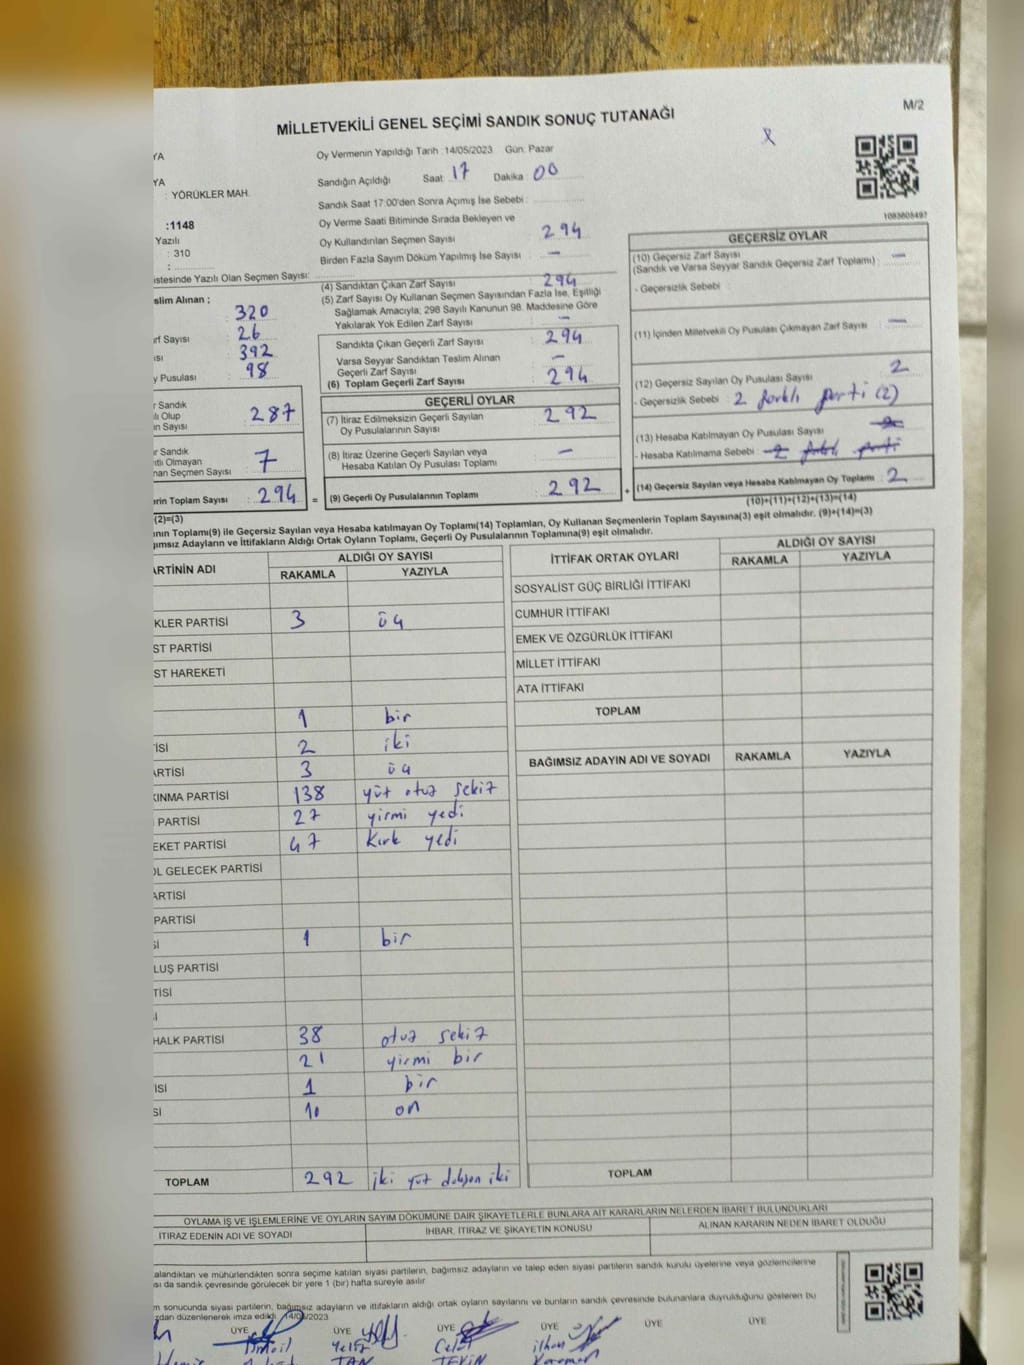 M/2
MİLLETVEKİLİ GENEL SEÇİMİ SANDIK SONUÇ TUTANAĞI
YA
Oy Vermenin Yapıldığı Tarih :14/05/2023 Gün: Pazar
YA
Sandığın Açıldığı Saat: 17 Dakika: 00
: YÖRÜKLER MAH.
Sandık Saat 17:00'den Sonra Açımış İse Sebebi :
:1148
Oy Verme Saati Bitiminde Sırada Bekleyen ve
Oy Kullandırılan Seçmen Sayısı : 294
Yazılı
: 310
Birden Fazla Sayım Döküm Yapılmış İse Sayısı : —
istesinde Yazılı Olan Seçmen Sayısı:
1083608497
(4) Sandıktan Çıkan Zarf Sayısı : 294
slim Alınan ;
(5) Zarf Sayısı Oy Kullanan Seçmen Sayısından Fazla İse, Eşitliği
Sağlamak Amacıyla; 298 Sayılı Kanunun 98. Maddesine Göre
Yakılarak Yok Edilen Zarf Sayısı : —
320
rf Sayısı 26
ısı 392
y Pusulası 98
Sandıkta Çıkan Geçerli Zarf Sayısı : 294
Varsa Seyyar Sandıktan Teslim Alınan
Geçerli Zarf Sayısı : —
(6) Toplam Geçerli Zarf Sayısı : 294
r Sandık
lı Olup
n Sayısı : 287
r Sandık
ntlı Olmayan
nan Seçmen Sayısı : 7
erin Toplam Sayısı : 294 =
GEÇERLİ OYLAR
(7) İtiraz Edilmeksizin Geçerli Sayılan
Oy Pusulalarının Sayısı : 292
(8) İtiraz Üzerine Geçerli Sayılan veya
Hesaba Katılan Oy Pusulası Toplamı : —
(9) Geçerli Oy Pusulalarının Toplamı : 292 +
GEÇERSİZ OYLAR
(10) Geçersiz Zarf Sayısı
(Sandık ve Varsa Seyyar Sandık Geçersiz Zarf Toplamı) : —
- Geçersizlik Sebebi :
(11) İçinden Milletvekili Oy Pusulası Çıkmayan Zarf Sayısı : —
(12) Geçersiz Sayılan Oy Pusulası Sayısı : 2
- Geçersizlik Sebebi : 2 farklı parti (2)
(13) Hesaba Katılmayan Oy Pusulası Sayısı : 2
- Hesaba Katılmama Sebebi : 2 farklı parti
(14) Geçersiz Sayılan veya Hesaba Katılmayan Oy Toplamı : 2
(10)+(11)+(12)+(13)=(14)
(2)=(3)
ının Toplamı(9) ile Geçersiz Sayılan veya Hesaba katılmayan Oy Toplamı(14) Toplamları, Oy Kullanan Seçmenlerin Toplam Sayısına(3) eşit olmalıdır. (9)+(14)=(3)
ğımsız Adayların ve İttifakların Aldığı Ortak Oyların Toplamı, Geçerli Oy Pusulalarının Toplamına(9) eşit olmalıdır.
ARTİNİN ADI
ALDIĞI OY SAYISI
RAKAMLA YAZIYLA
KLER PARTİSİ 3 üç
ST PARTİSİ
ST HAREKETİ
1 bir
İSİ 2 iki
ARTİSİ 3 üç
KINMA PARTİSİ 138 yüz otuz sekiz
PARTİSİ 27 yirmi yedi
EKET PARTİSİ 47 Kırk yedi
OL GELECEK PARTİSİ
ARTİSİ
PARTİSİ
Sİ 1 bir
LUŞ PARTİSİ
TİSİ
HALK PARTİSİ 38 otuz sekiz
21 yirmi bir
İSİ 1 bir
Sİ 10 on
TOPLAM 292 iki yüz doksan iki
İTTİFAK ORTAK OYLARI
ALDIĞI OY SAYISI
RAKAMLA YAZIYLA
SOSYALİST GÜÇ BİRLİĞİ İTTİFAKI
CUMHUR İTTİFAKI
EMEK VE ÖZGÜRLÜK İTTİFAKI
MİLLET İTTİFAKI
ATA İTTİFAKI
TOPLAM
BAĞIMSIZ ADAYIN ADI VE SOYADI RAKAMLA YAZIYLA
TOPLAM
OYLAMA İŞ VE İŞLEMLERİNE VE OYLARIN SAYIM DÖKÜMÜNE DAİR ŞİKAYETLERLE BUNLARA AİT KARARLARIN NELERDEN İBARET BULUNDUKLARI
İTİRAZ EDENİN ADI VE SOYADI İHBAR, İTİRAZ VE ŞİKAYETİN KONUSU ALINAN KARARIN NEDEN İBARET OLDUĞU
alandıktan ve mühürlendikten sonra seçime katılan siyasi partilerin, bağımsız adayların ve talep eden siyasi partilerin sandık kurulu üyelerine veya gözlemcilerine
sı da sandık çevresinde görülecek bir yere 1 (bir) hafta süreyle asılır.
m sonucunda siyasi partilerin, bağımsız adayların ve ittifakların aldığı ortak oyların sayılarını ve bunların sandık çevresinde bulunanlara duyrulduğunu gösteren bu
zdan düzenlenerek imza edildi. 14/05/2023
ÜYE ÜYE ÜYE ÜYE ÜYE ÜYE
İsmail Yeliz Celal ilhan
TAN TEKİN Karaman